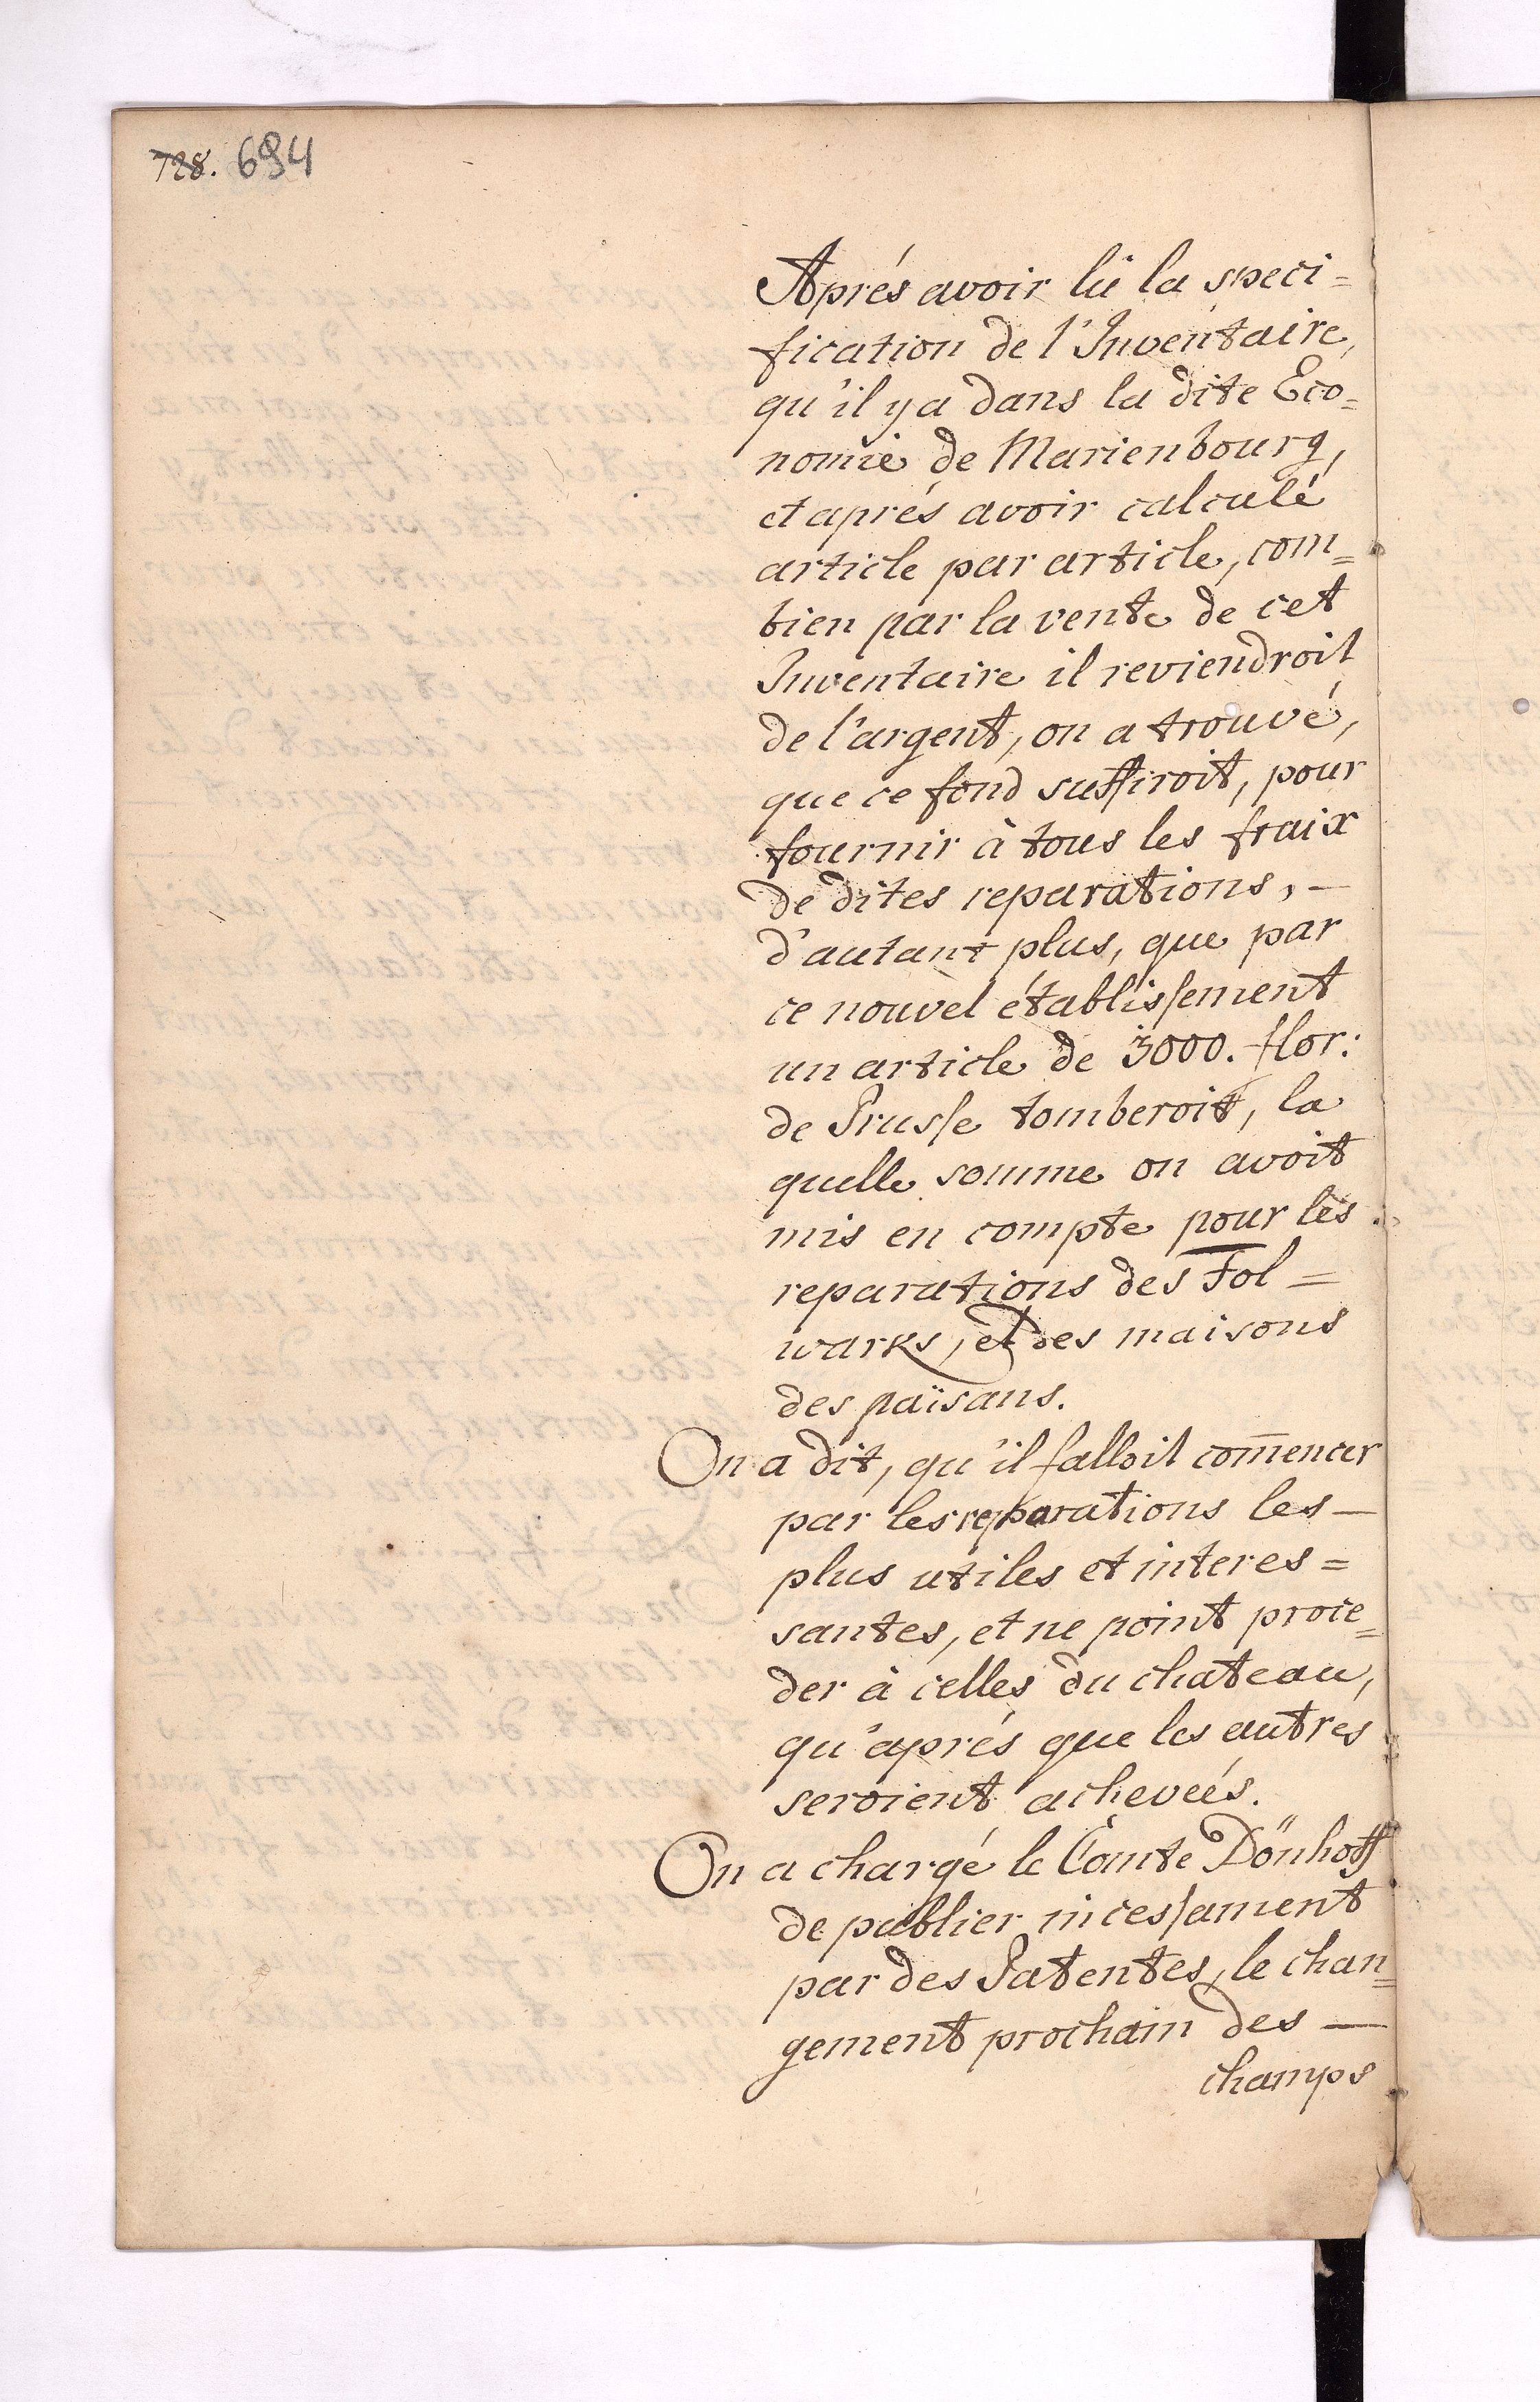 728. 694
Aprés avoir lû la speci=
fication de l'Inventaire,
qu'il y a dans la dite Eco=
nomie de Marienbourg,
et aprés avoir calculé
article par article, com=
bien par la vente de cet
Inventaire il reviendroit
de l'argent, on a trouvé,
que ce fond suffiroit, pour
fournir à tous les fraix
de dites reparations, —
d'autant plus, que par
ce nouvel établissement
un article de 3000. flor:
de Prusse tomberoit, la
quelle somme on avoit
mis en compte pour les
reparations des Fol=
warks, et des maisons
des païsans.
On a dit, qu'il falloit com̄encer
par les reparations les —
plus utiles et interes=
santes, et ne point proce=
der à celles du chateau,
qu'aprés que les autres
seroient acheveés.
On a chargé le Comte Dönhoff
de publier incessament
par des Patentes, le chan=
gement prochain des —
champs